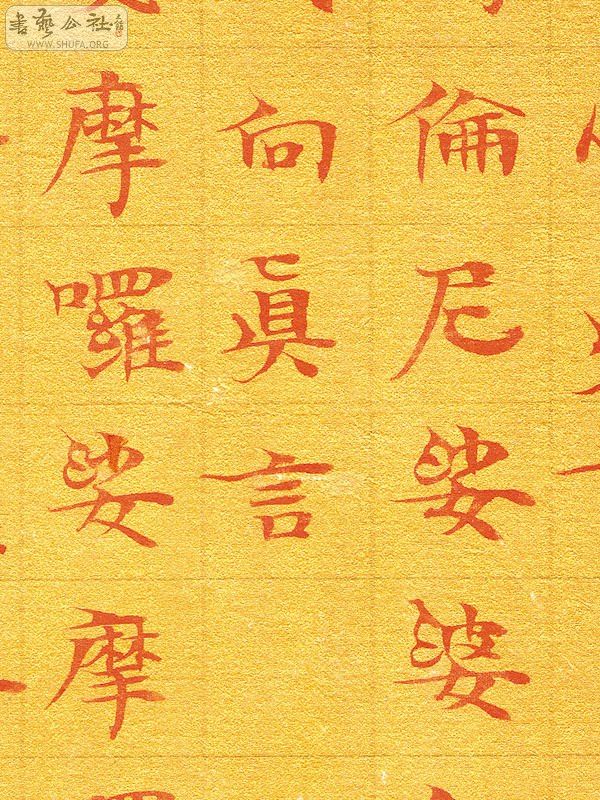 書藝公社
WWW.SHUFA.ORG
倫尼娑婆
向眞言
摩囉娑摩